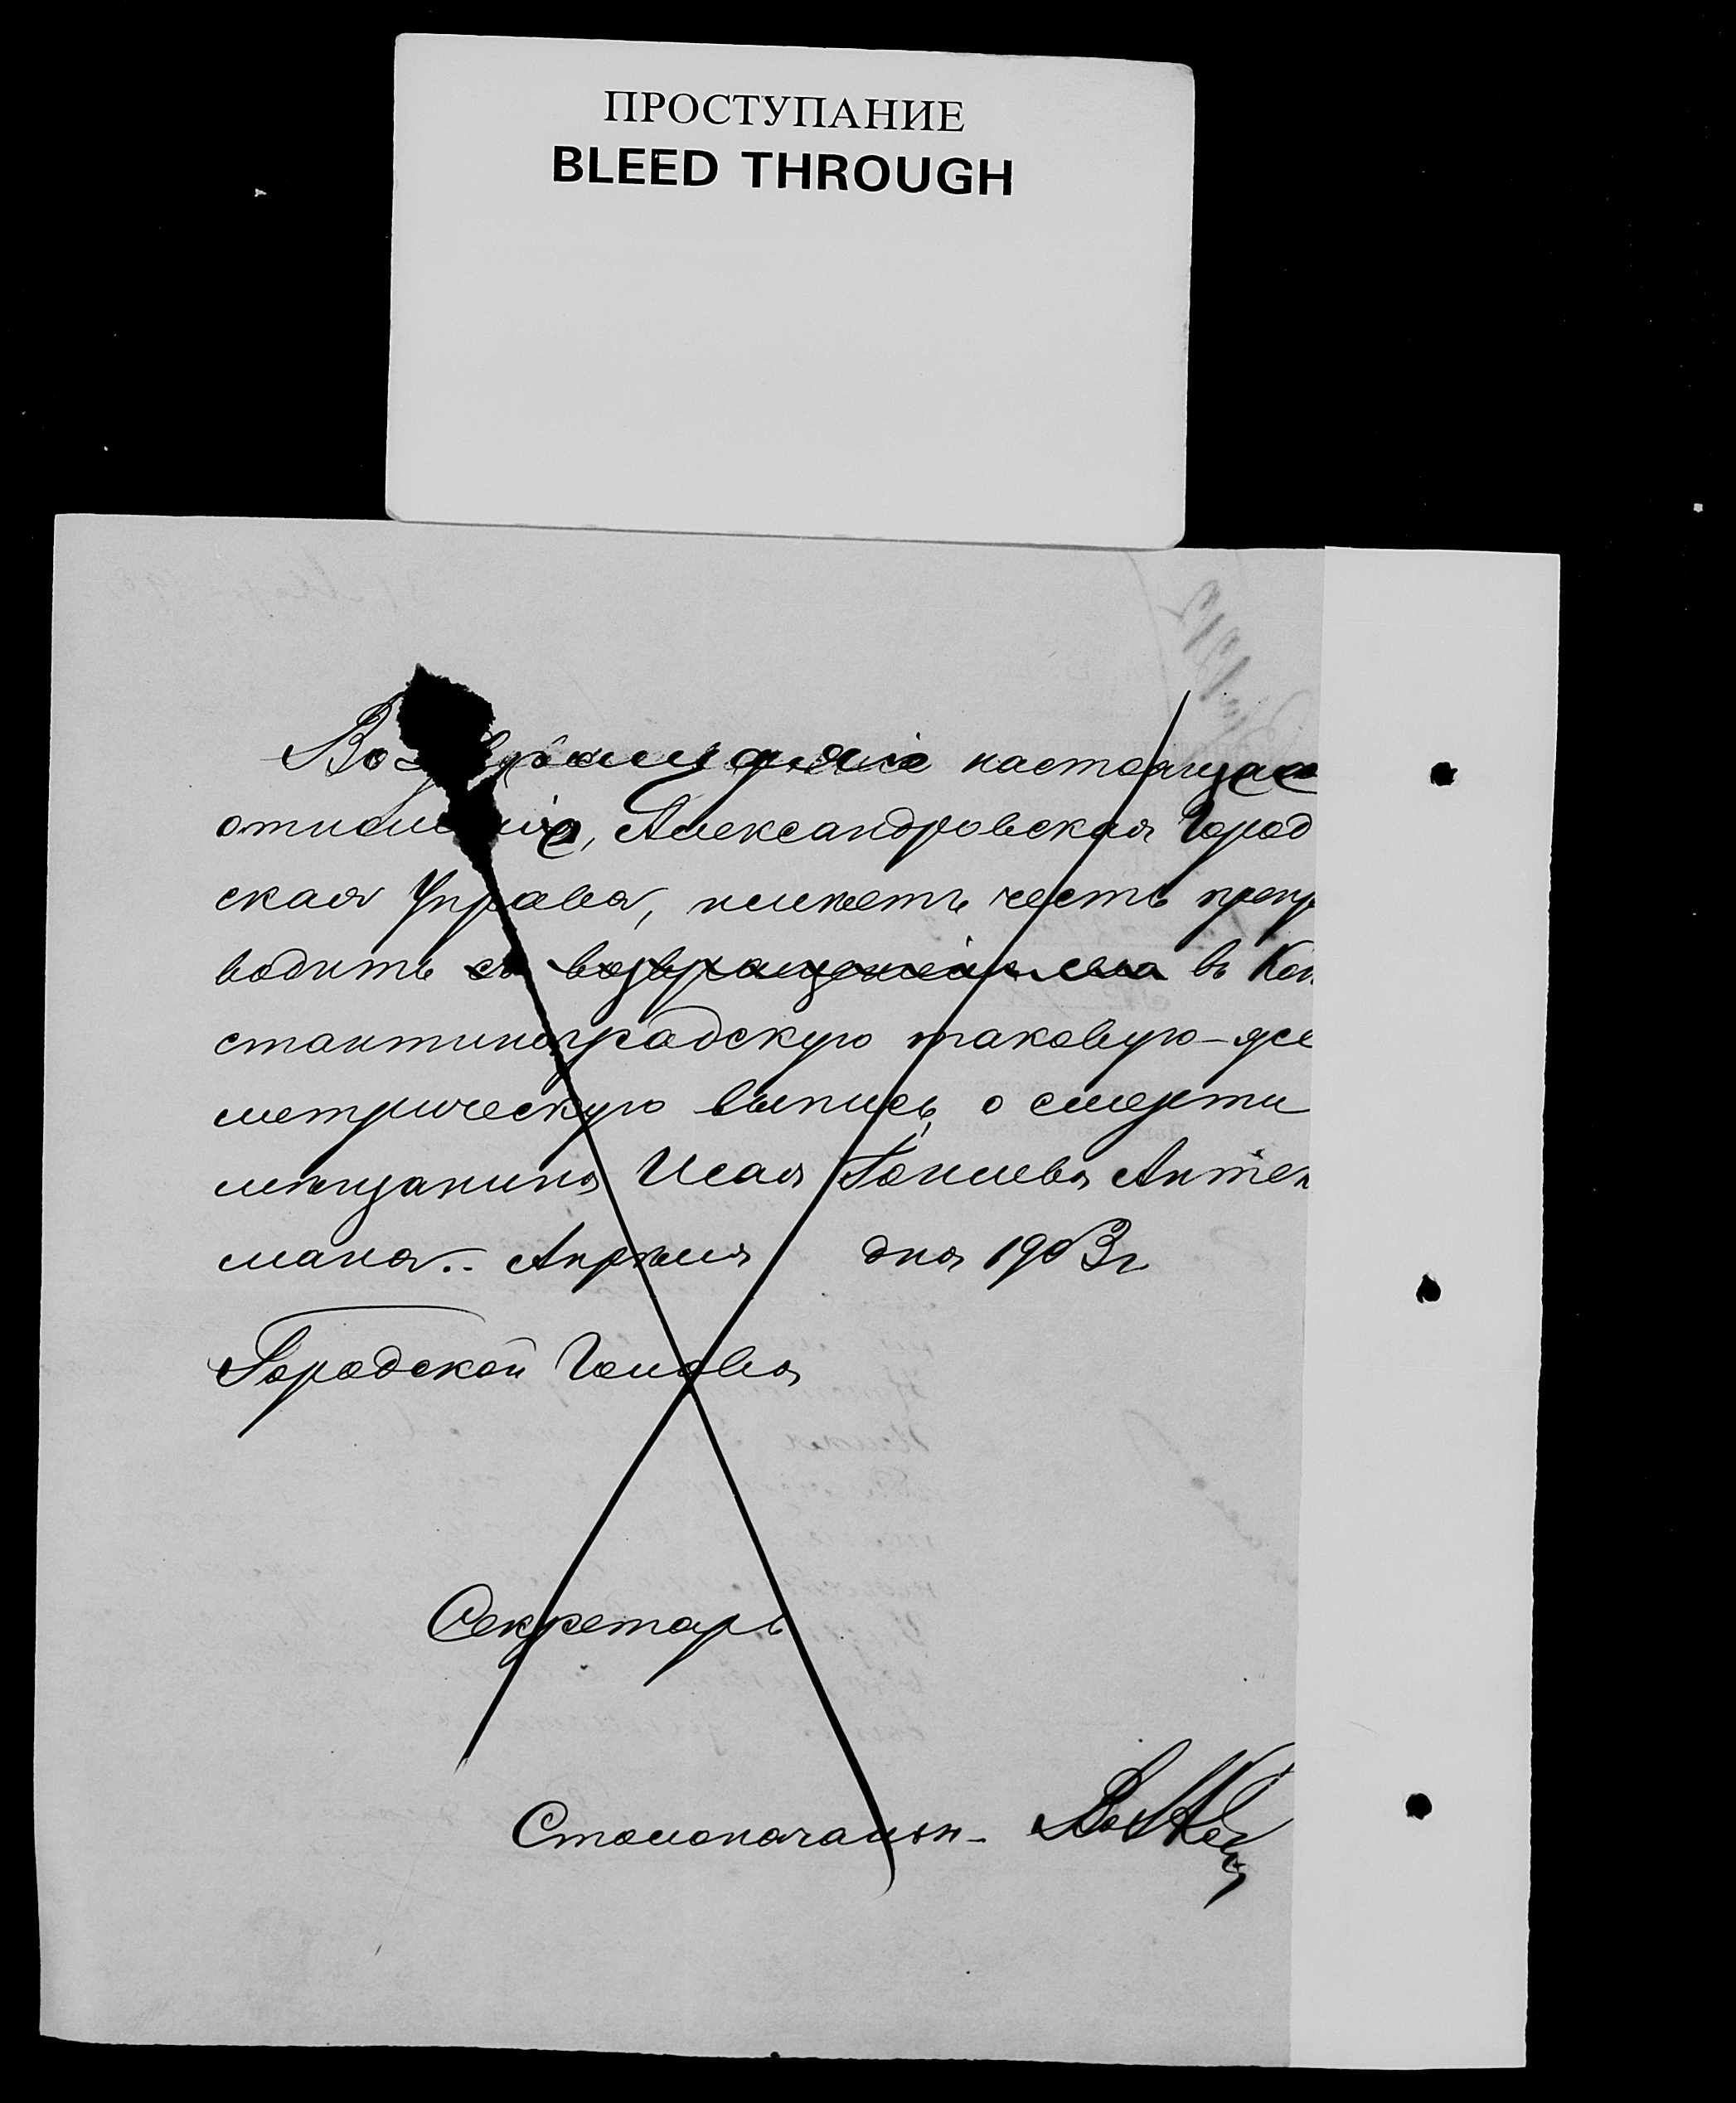 ПРОСТУПАНИЕ
BLEED THROUGH
настоящее
отношеніе, Александровская Город
ская Управа, имѣетъ честь препр
водить съ возвращеніемъ въ Кон
стантиноградскую таковую
метрическую выпись о смерти
мѣщанина Исая Антек
мана. Апрѣля дня 1903 г
Городской Голова
Секретарь
Столоначальн-